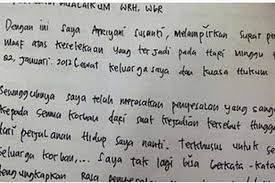 MUALAIKUM WRH, WBR
Dengan ini saya Apriyani Susanti, melampirkan surat per
Maaf atas kecelakaan yang terjadi pada Hari Minggu
22. Januari. 2012 Lewat keluarga saya dan kuasa Hukum
Sesungguhnya saya telah merasakan penyesalan yang sang
kepada semua korban dari saat kejadian tersebut hingga
dari perjalanan Hidup saya nanti. Terkhusus untuk se
keluarga korban... saya tak lagi bisa berkata-kata
mengungkapkan Rasa